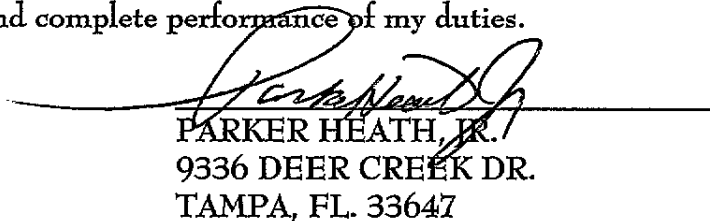 nd complete performance of my duties.
Parker Heath Jr
PARKER HEATH, JR.
9336 DEER CREEK DR.
TAMPA, FL. 33647